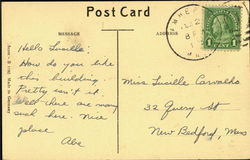 Post Card
MESSAGE
ADDRESS
Hello Lucille:
How do you like
this building.
Pretty isn't it.
Well there are many
such here. Nice
place
Abe
Miss Lucille Carvalho
32 Query St
New Bedford, Mass
1